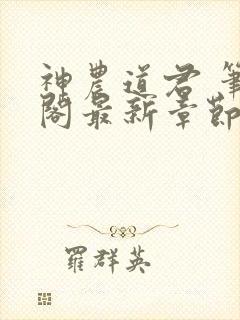 神農道君 筆
閣最新章節
羅群英